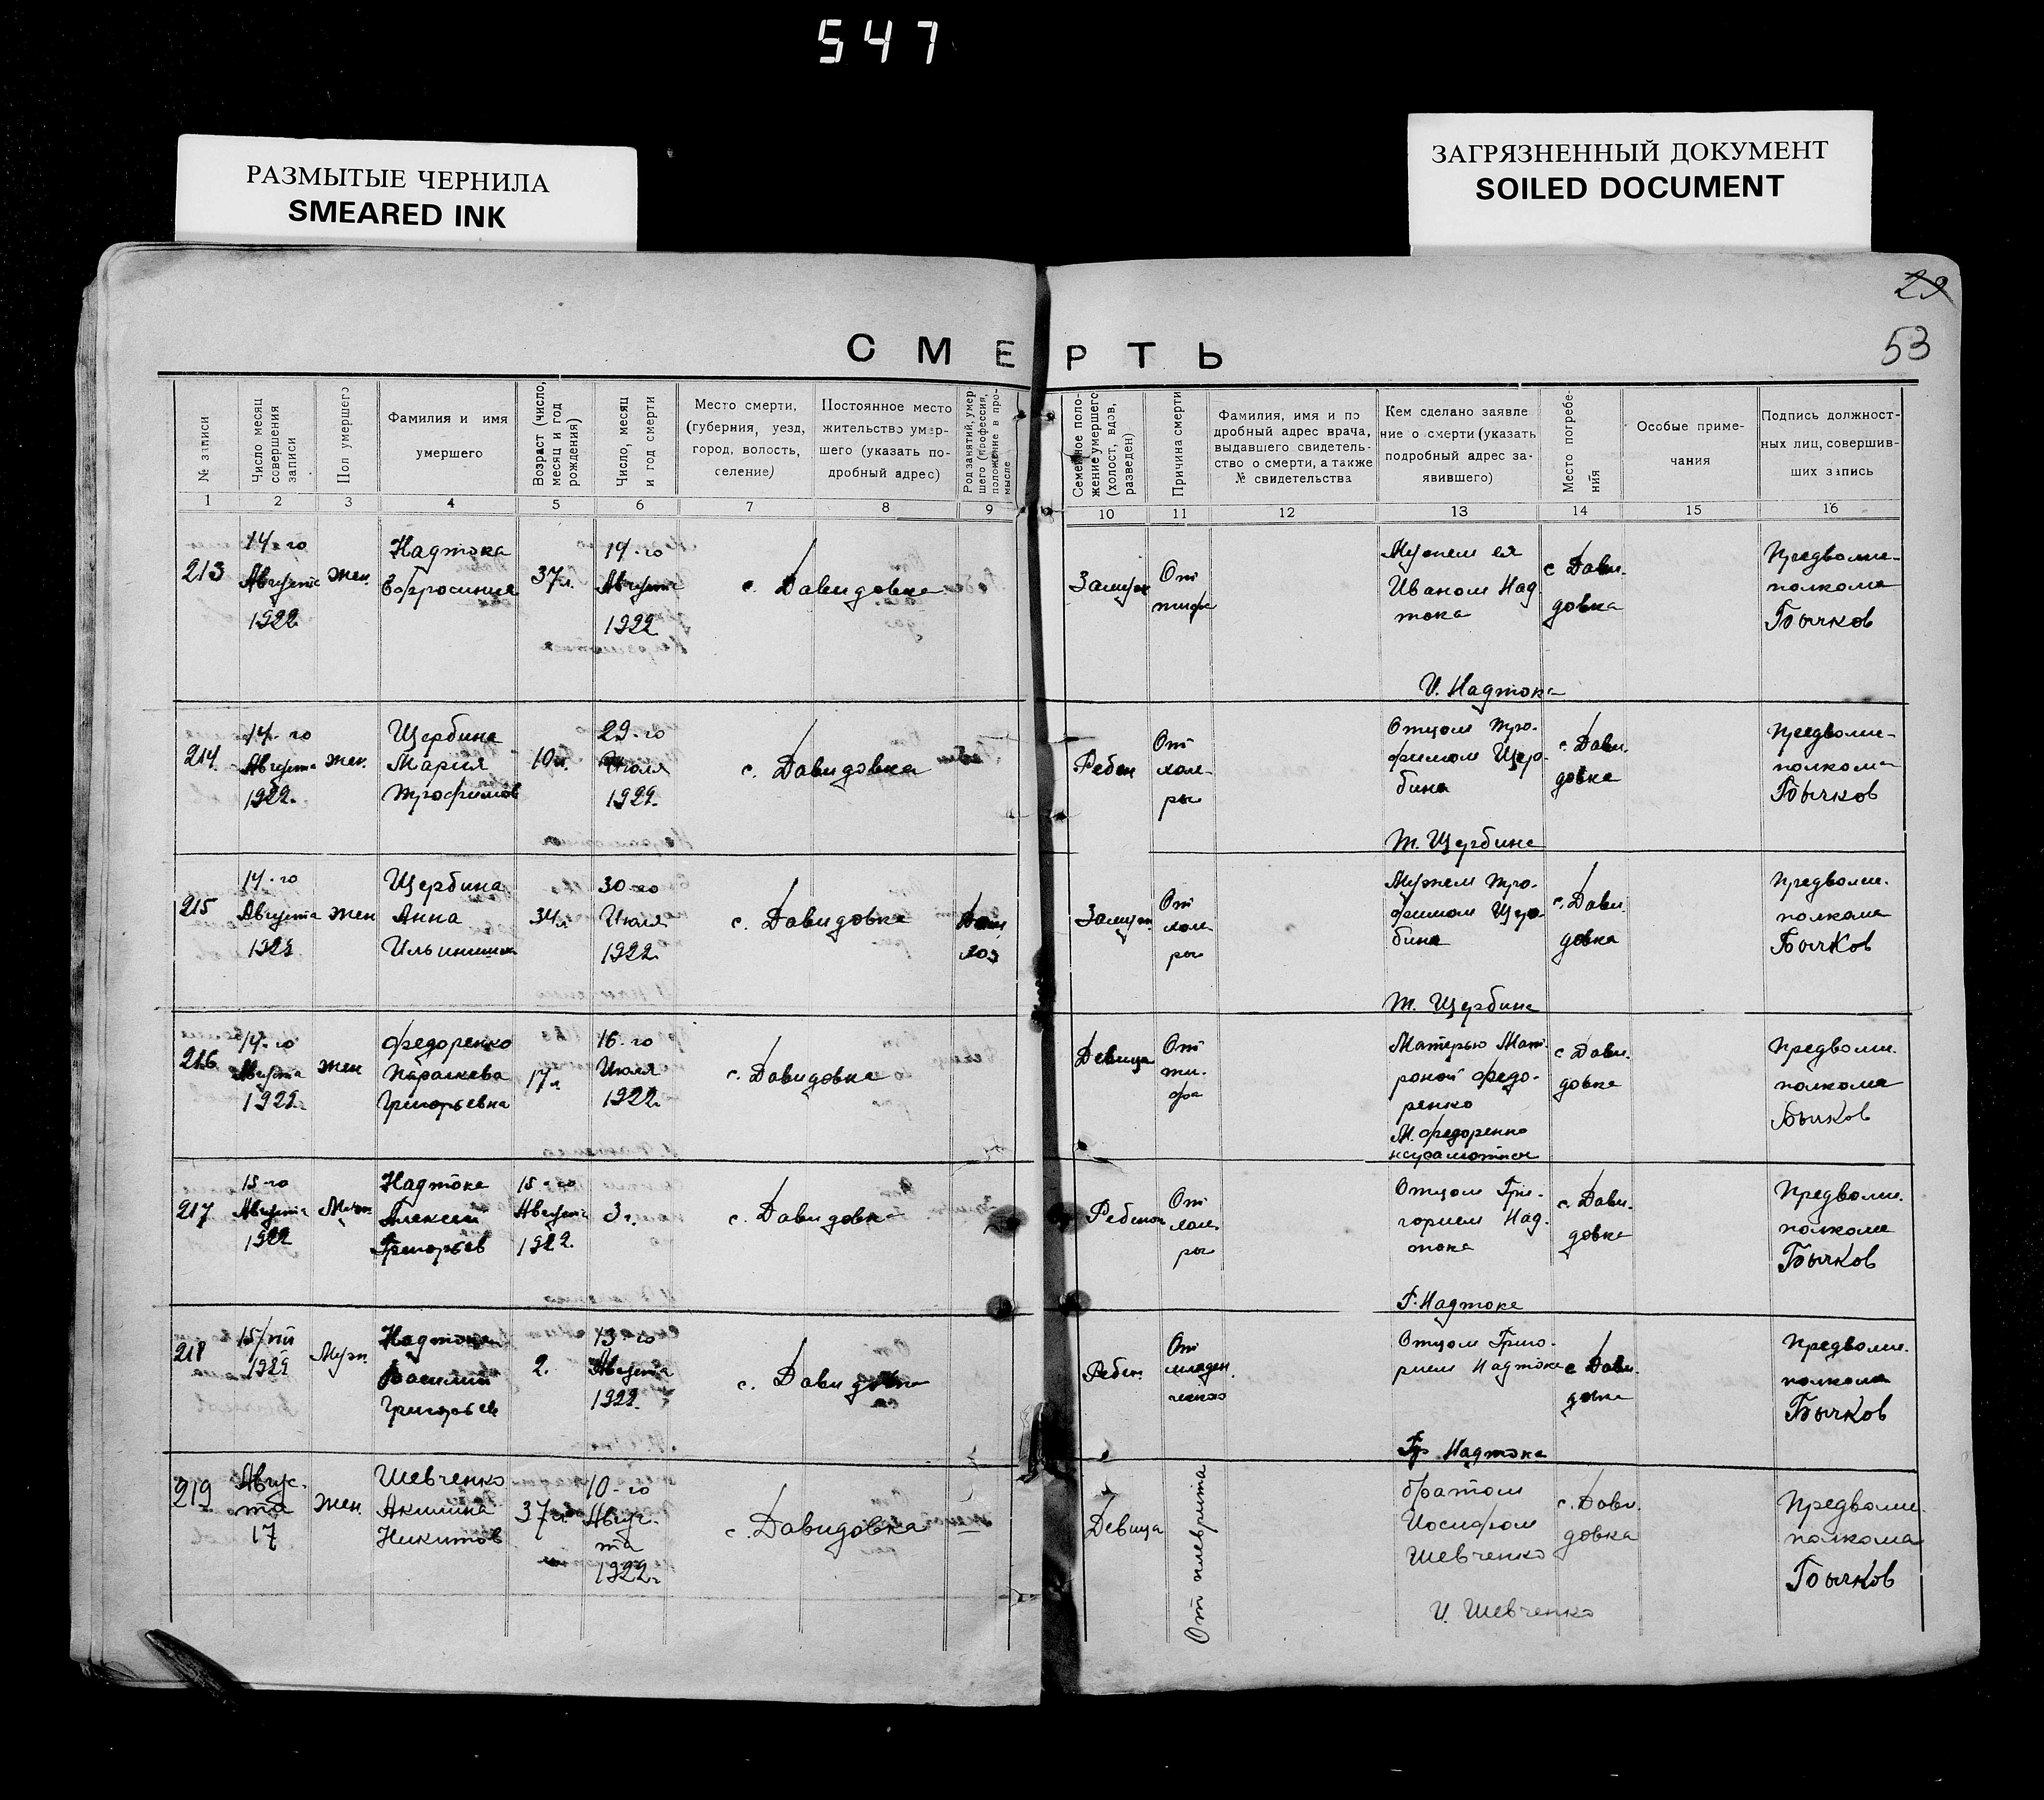 547
РАЗМЫТЫЕ ЧЕРНИЛА
SMEARED INK
ЗАГРЯЗНЕННЫЙ ДОКУМЕНТ
SOILED DOCUMENT
29
53
СМЕРТЬ
№ записи
Число месяц
совершения
записи
Пол умершего
Фамилия и имя
умершего
Возраст (число,
месяц и год
рождения)
Число, месяц
и год смерти
Место смерти,
(губерния, уезд,
город, волость,
селение)
Постоянное место
жительство умер-
шего (указать по-
дробный адрес)
Род занятий, умер
шего (профессия,
положение в про-
мысле
Семейное поло-
жение умершего
(холост, вдов,
разведен)
Причина смерти
Фамилия, имя и по
дробный адрес врача,
выдавшего свидетель-
ство о смерти, а также
№ свидетельства
Кем сделано заявле
ние о смерти (указать
подробный адрес за-
явившего)
Место погребе-
ния
Особые приме-
чания
Подпись должност-
ных лиц, совершив-
ших запись
1 2 3 4 5 6 7 8 9 10 11 12 13 14 15 16
213
14-го
Августа
1922
Жен.
Надтока
Ефросиния
37л.
14-го
Августа
1922
с. Давидовка
Замуж
От
тифа
Мужем ея
Иваном Над
тока
И. Надтока
с Дави.
довка
Предволис-
полкома
Бычков
214
14-го
Августа
1922.
Жен.
Щербина
Мария
Трофимов
10л.
29-го
Июля
1922.
с. Давидовка
Ребен
От
холе-
ры
Отцом Тро-
фимом Щер-
бина
Т. Щербина
с. Дави.
довка
Предволис-
полкома
Бычков
215
14-го
Августа
1922
Жен
Щербина
Анна
Ильинишна
34л
30-го
Июля
1922.
с. Давидовка
Замуж.
От
холе-
ры
Мужем Тро-
фимом Щер
бина
Т. Щербина
с. Дави.
довка
Предволис.
полкома
Бычков
216
14-го
Августа
1922.
Жен
Федоренко
Параскева
Григорьевна
17л
16-го
Июля
1922.
с. Давидовка
Девица
От
ти-
фа
Матерью Мат-
роной Федо-
ренко
М. Федоренко
неграмотная
с Дави.
довка
Предволис.
полкома
Бычков
217
15-го
Августа
1922
Муж.
Надтока
Алексей
Григорьев
15-го
Августа
1922.
3г.
с. Давидовка
Ребенок
От
холе-
ры
Отцом Гри-
горием Над-
тока
Г. Надтока
с. Дави.
довка
Предволис.
полкома
Бычков
218
15/VIII
1922
Муж.
Надтока
Василий
Григорьев
2.
13-го
Августа
1922.
с. Давидовка
Ребен.
От
младен.
ческаго
Отцом Григо-
рием Надтока
Гр. Надтока
с Дави.
довка
Предволис.
полкома
Бычков
219
Авгус-
та
17
Жен.
Шевченко
Акилина
Никитов
37л.
10-го
Авгус-
та
1922г
с. Давидовка
Девица
От плеврита
братом
Иосифом
Шевченко
И. Шевченко
с. Дави.
довка
Предволис.
полкома
Бычков